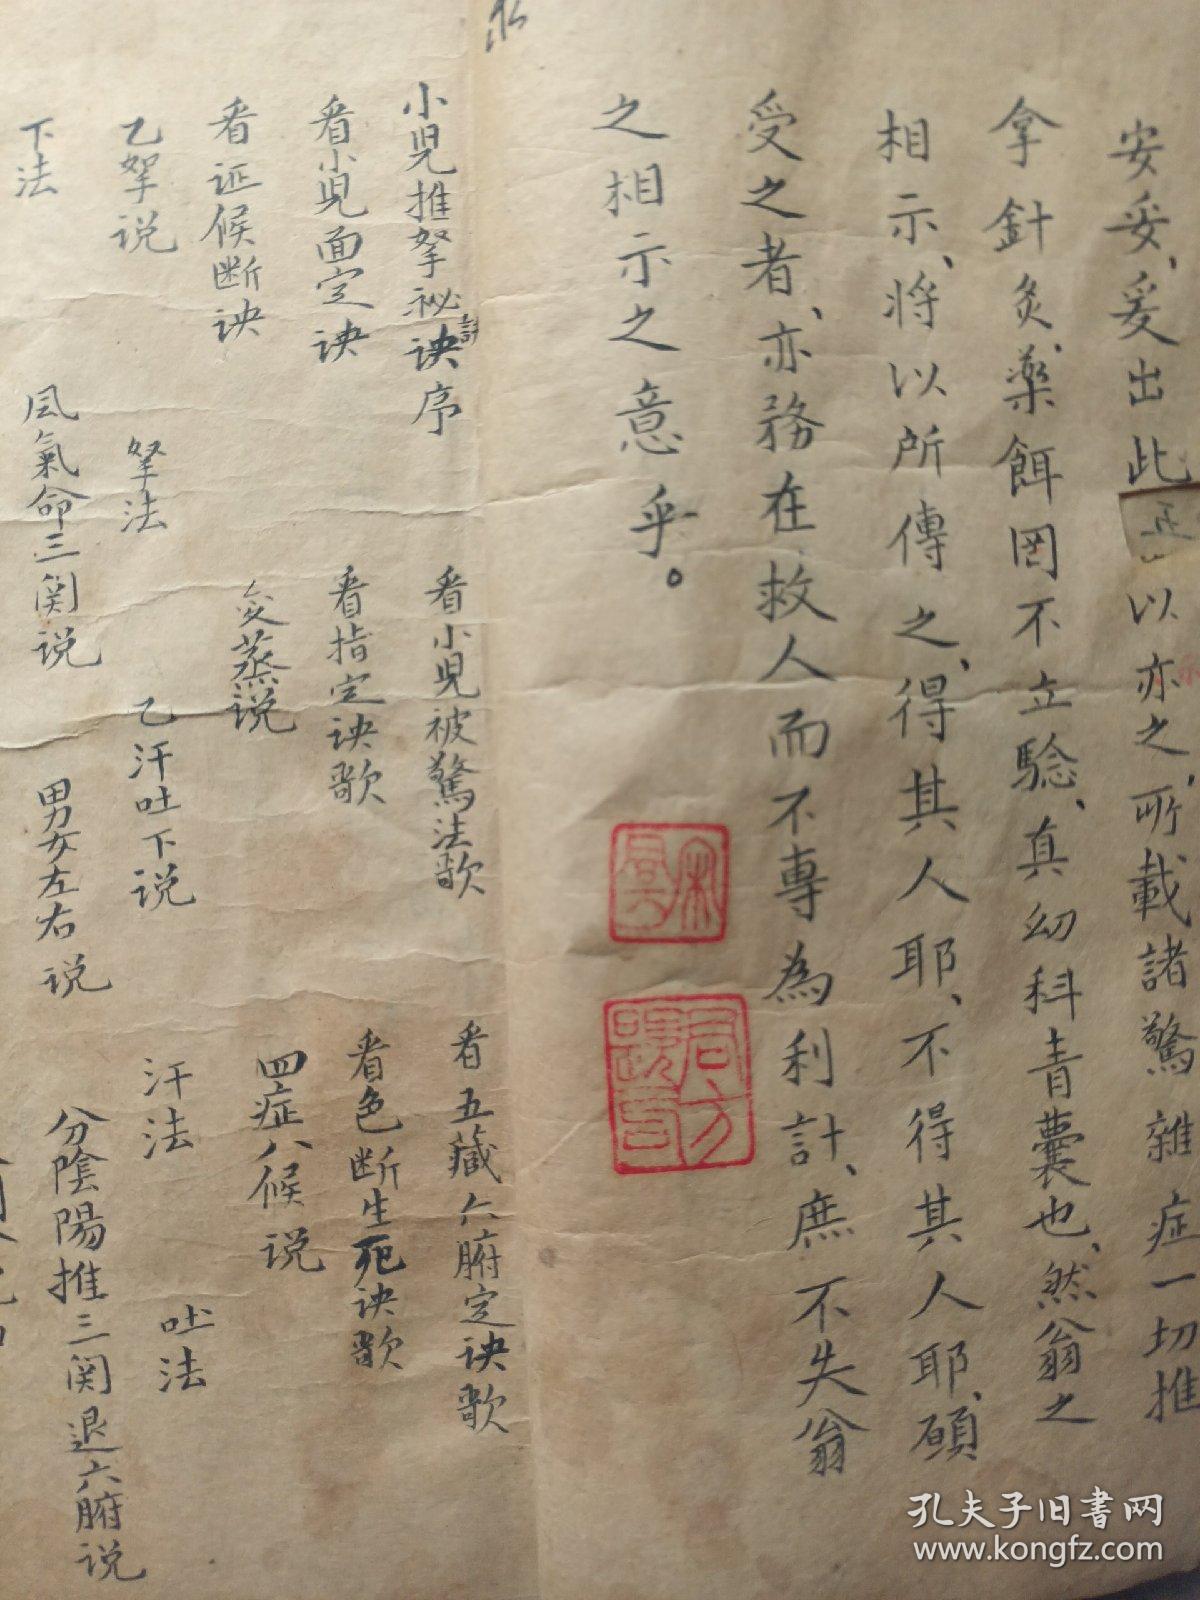 安妥、爰出此
以亦之、所載諸驚雜症一切推
拿針灸、藥餌罔不立驗、真幼科青囊也、然翁之
相示、將以所傳之、得其人耶、不得其人耶、顧
受之者、亦務在救人而不專為利計、庶不失翁
之相示之意乎。
小児推拏祕诀序 看小児被驚法歌 看五藏六腑定诀歌
看小児面定诀 看指定诀歌 看色断生死诀歌
看证候断诀 变蒸说 四症八候说
乙拏说 拏法 乙汗吐下说 汗法 吐法
下法 风氣命三関说 男女左右说 分陰陽推三関退六腑说
孔夫子旧书网
www.kongfz.com